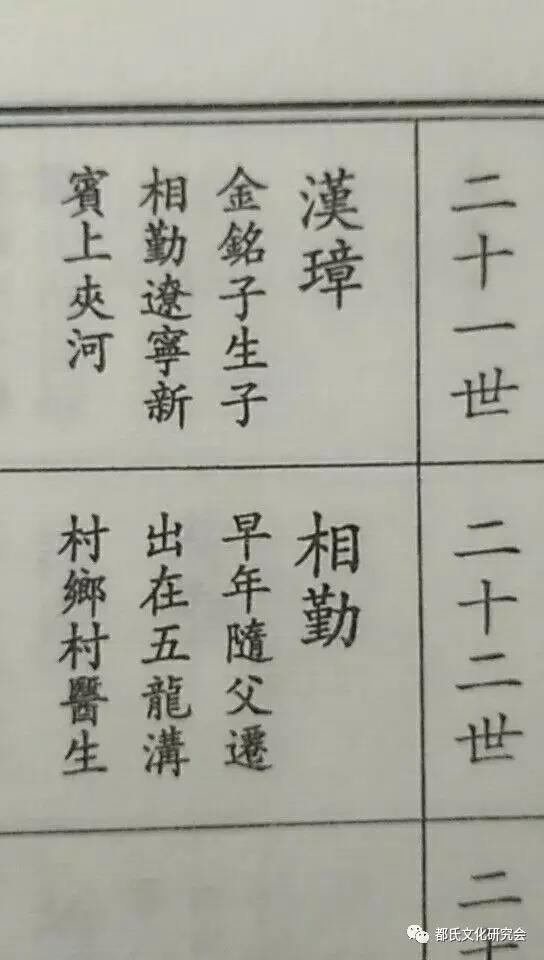 二十一世
漢璋
金銘子生子
相勤遼寧新
賓上夾河
二十二世
相勤
早年隨父遷
出在五龍溝
村鄉村醫生
二十
都氏文化研究会